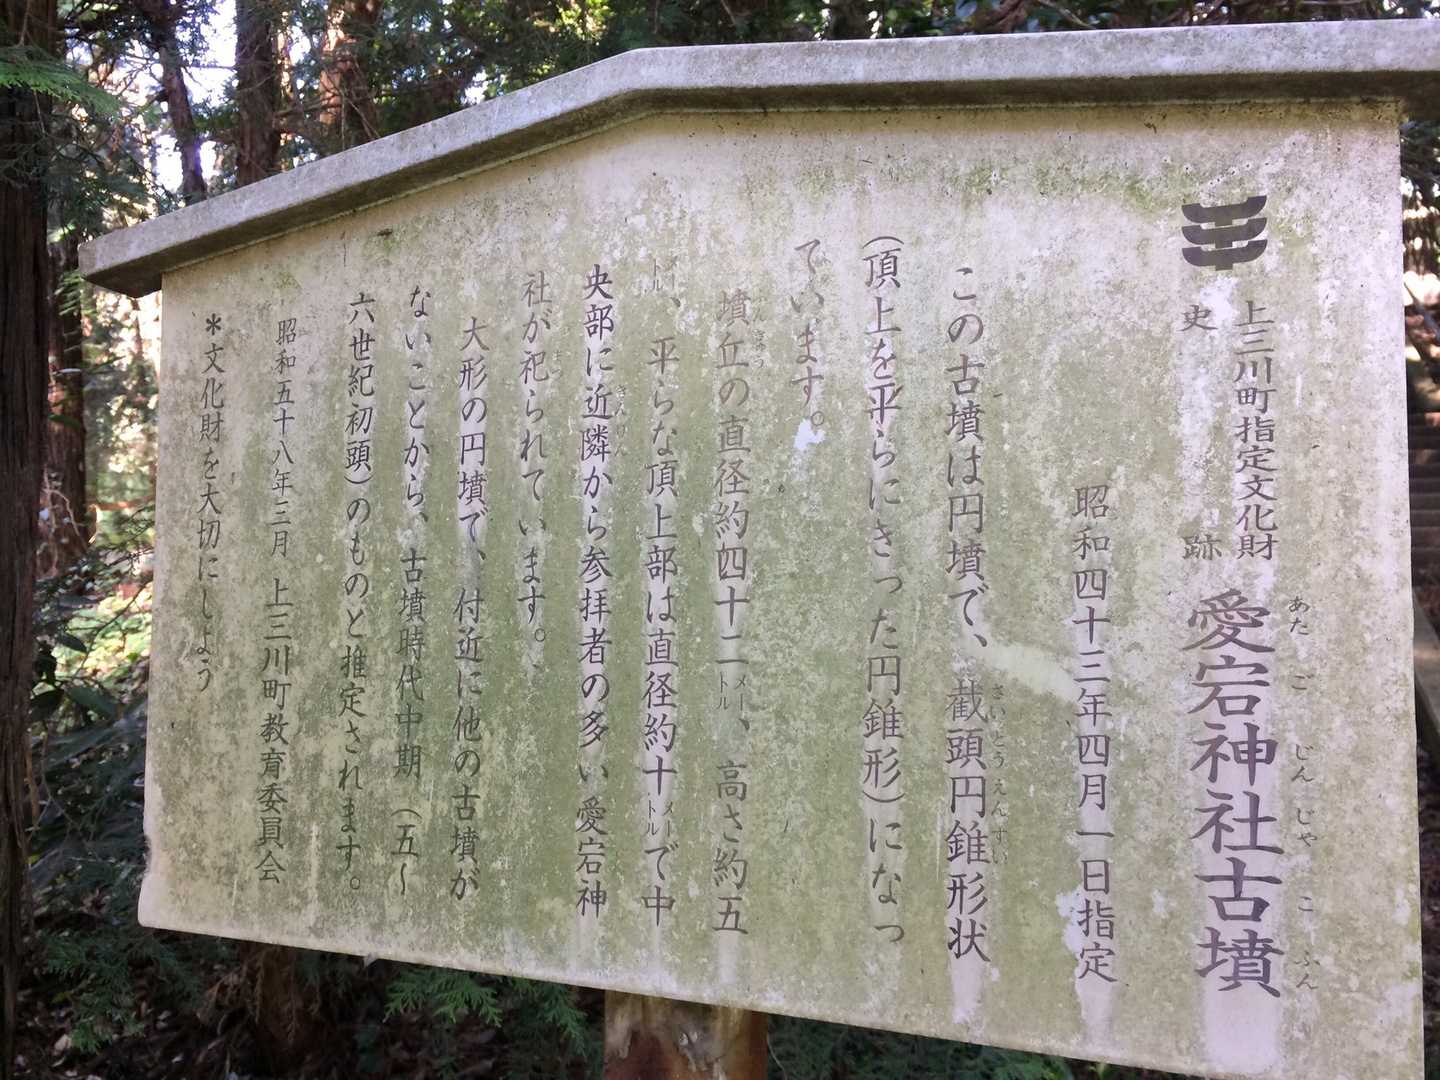 上三川町指定文化財
史跡
愛宕神社古墳
あたごじんじゃこふん
昭和四十三年四月一日指定
この古墳は円墳で、截頭円錐形状
さいとうえんすい
(頂上を平らにきった円錐形)になっ
ています。
墳丘の直径約四十二メートル、高さ約五
メートル、平らな頂上部は直径約十メートルで中
央部に近隣から参拝者の多い愛宕神
きんりん
社が祀られています。
まつ
大形の円墳で、付近に他の古墳が
ないことから、古墳時代中期(五〜
六世紀初頭)のものと推定されます。
昭和五十八年三月 上三川町教育委員会
*文化財を大切にしよう